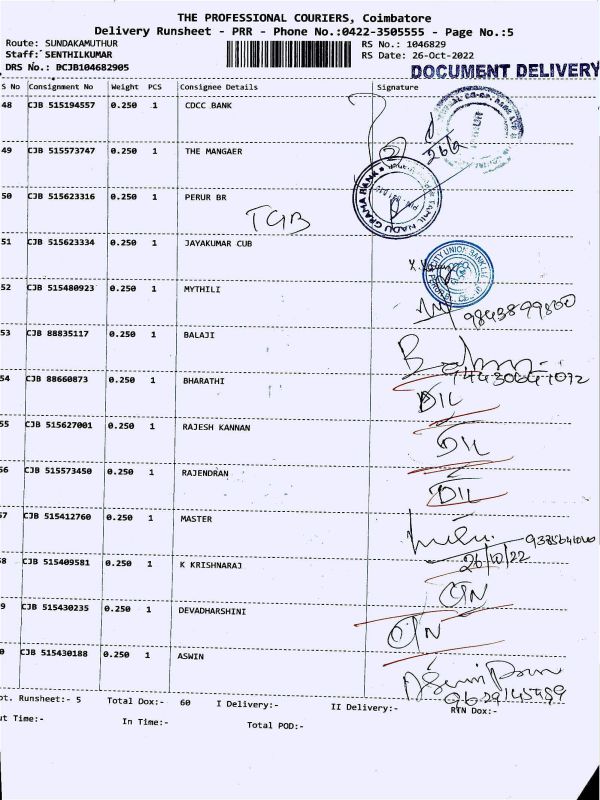 THE PROFESSIONAL COURIERS, Coimbatore
Delivery Runsheet - PRR - Phone No.:0422-3505555 - Page No.:5
Route: SUNDAKAMUTHUR
RS No.: 1046829
Staff: SENTHILKUMAR
RS Date: 26-Oct-2022
DRS No.: DCJB104682905
DOCUMENT DELIVERY
S No Consignment No Weight PCS Consignee Details Signature
48 CJB 515194557 0.250 1 CDCC BANK
49 CJB 515573747 0.250 1 THE MANGAER
50 CJB 515623316 0.250 1 PERUR BR
TGB
51 CJB 515623334 0.250 1 JAYAKUMAR CUB
52 CJB 515480923 0.250 1 MYTHILI
9843899860
53 CJB 88835117 0.250 1 BALAJI
54 CJB 88660873 0.250 1 BHARATHI
D/L
55 CJB 515627001 0.250 1 RAJESH KANNAN
D/L
56 CJB 515573450 0.250 1 RAJENDRAN
D/L
57 CJB 515412760 0.250 1 MASTER
26/10/22
58 CJB 515409581 0.250 1 K KRISHNARAJ
9 CJB 515430235 0.250 1 DEVADHARSHINI
0 CJB 515430188 0.250 1 ASWIN
9629145959
pt. Runsheet:- 5 Total Dox:- 60 I Delivery:- II Delivery:- RTN Dox:-
ut Time:- In Time:- Total POD:-